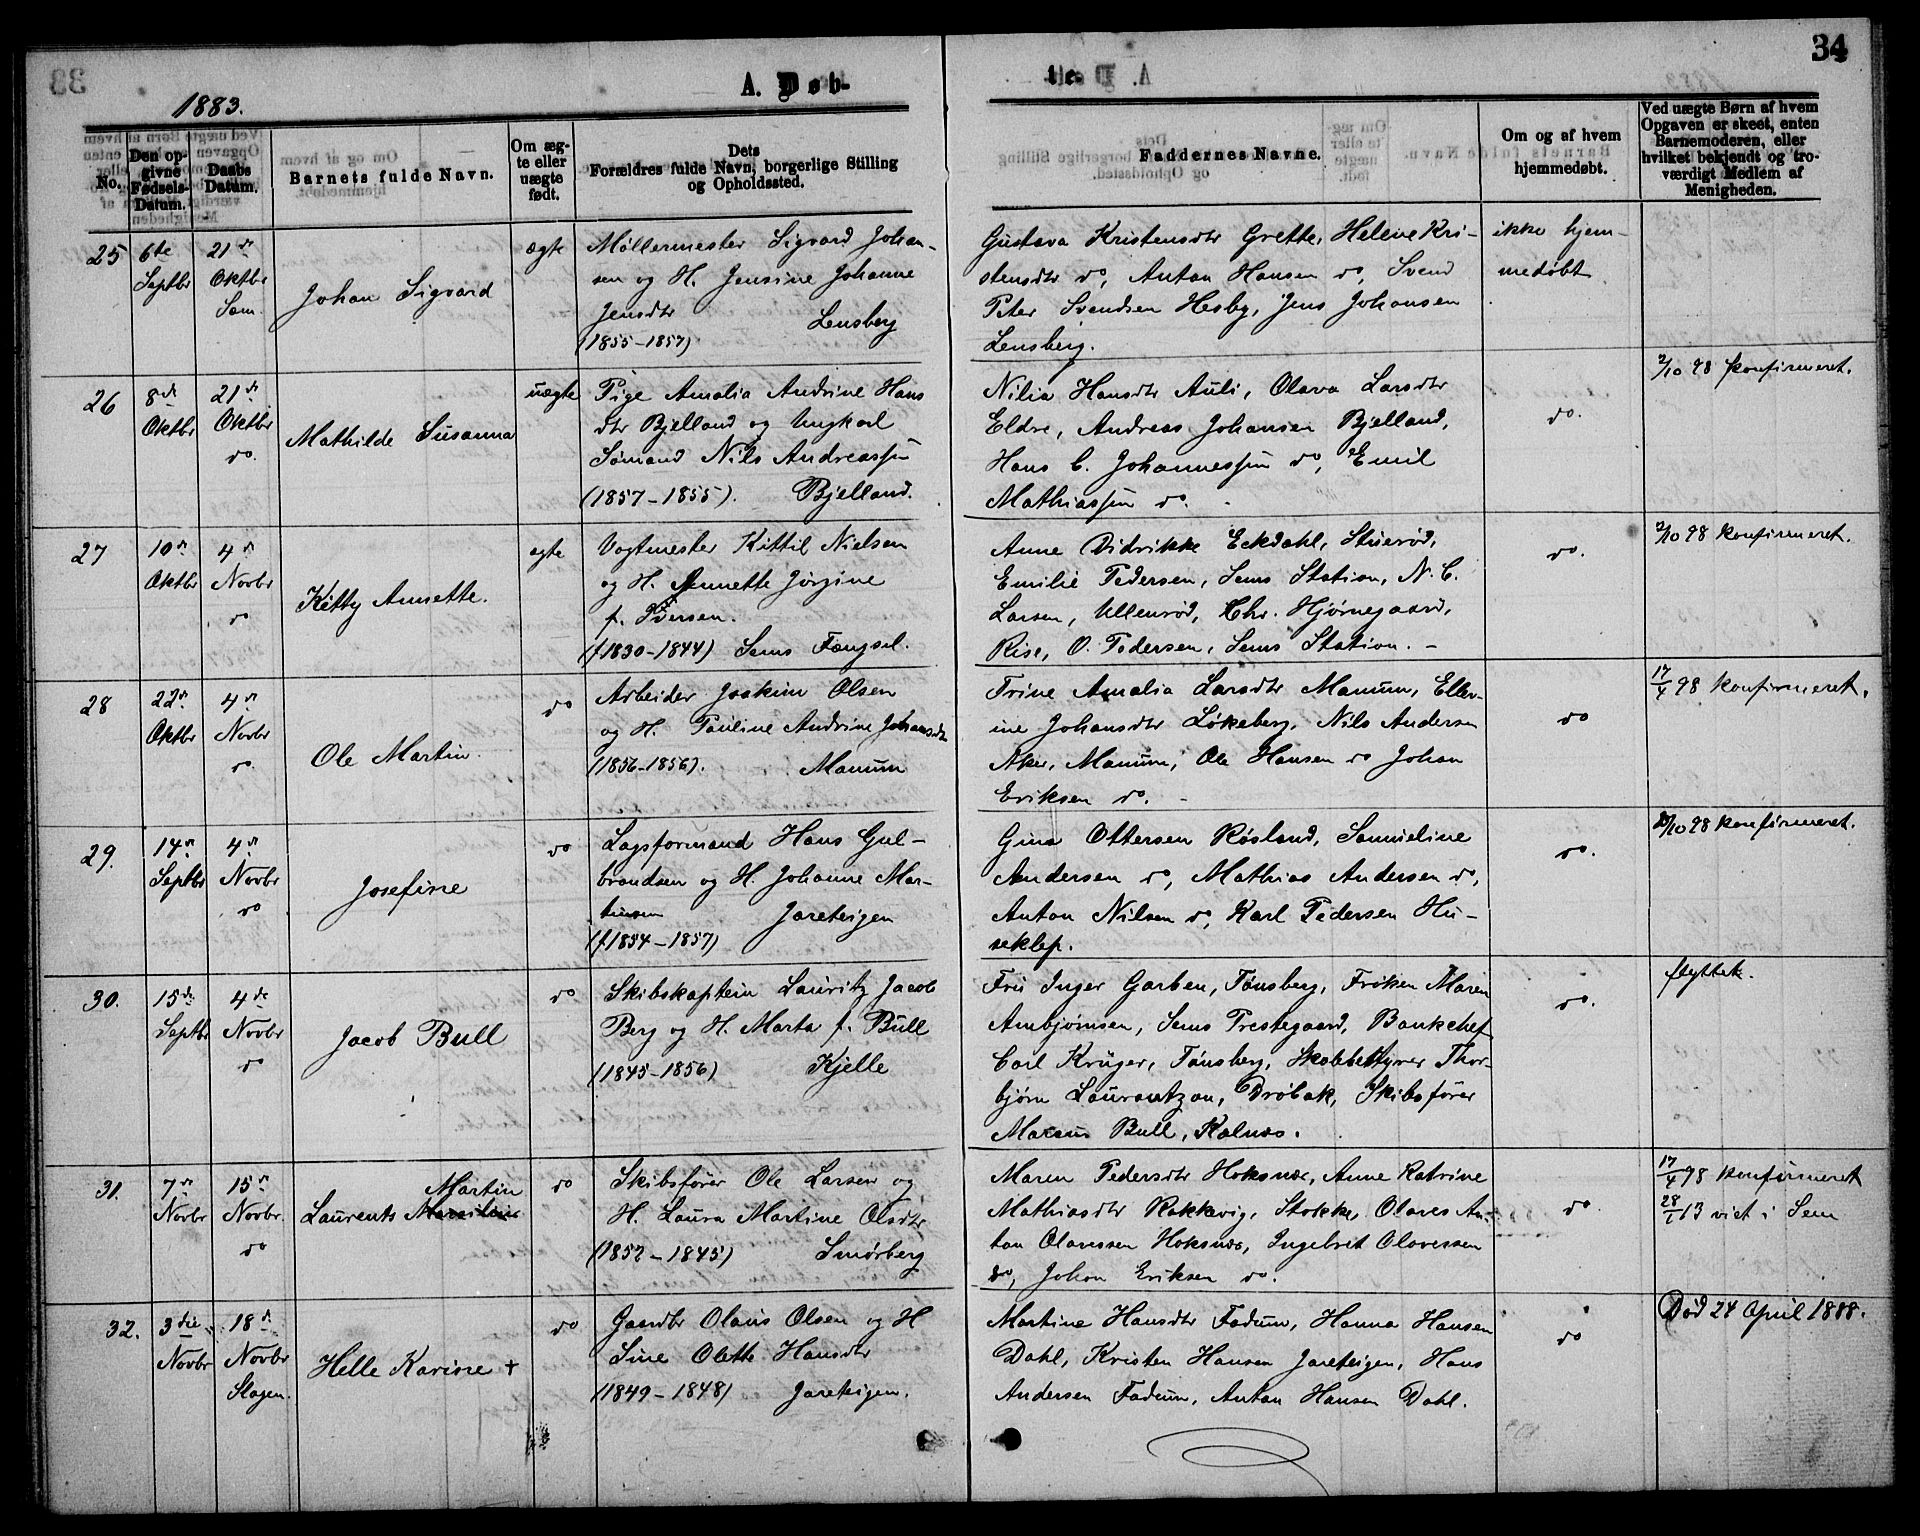 34
A. Døb-
te.
1883.
No.
Den op-
givne
Fødsels-
Datum.
Daabs
Datum.
Barnets fulde Navn.
Om æg-
te eller
uægte
født.
Dets
Forældres fulde Navn, borgerlige Stilling
og Opholdssted.
Faddernes Navne.
Om og af hvem
hjemmedøbt.
Ved uægte Børn af hvem
Opgaven er skeet, enten
Barnemoderen, eller
hvilket bekjendt og tro-
værdigt Medlem af
Menigheden.
25
6te
Septbr
21de
Oktbr
Sem.
Johan Sigvard
ægte
Møllermester Sigvard Johan-
sen og H. Jensine Johanne
Jensdtr Lensberg
(1855-1857)
Gustava Kristensdtr Grette, Helene Kri-
stensdtr do, Anton Hansen do, Svend
Peter Svendsen Hesby, Jens Johansen
Lensberg.
ikke hjem-
medøbt
26
8de
Oktbr
21de
Oktbr
do.
Mathilde Susanna
uægte
Pige Amalia Andrine Hans
dtr Bjelland og Ungkarl
Sømand Nils Andreassen
(1857-1855). Bjelland.
Nilia Hansdtr Auli, Olava Larsdtr
Eldre, Andreas Johansen Bjelland,
Hans C. Johannessen do, Emil
Mathiassen do.
do.
2/10 98 konfirmeret.
27
10de
Oktbr
4de
Novbr
do
Kitty Annette.
ægte
Vogtmester Kittil Nielsen
og H. Annette Jørgine
f. Iversen.
(1830-1844) Sems Fængsel.
Anne Didrikke Eckdahl, Stuerød,
Emilie Pedersen, Sems Station, N. C.
Larsen, Ullenrød, Chr. Hjørnegaard,
Rise, O. Pedersen, Sems Station. -
do.
2/10 98 konfirmeret.
28
22de
Oktbr
4de
Novbr
do
Ole Martin.
do
Arbeider Joakim Olsen
og H. Pauline Andrine Johansdtr
(1856-1856). Manum
Trine Amalia Larsdtr Manum, Eller-
ine Johansdtr Løkeberg, Nils Andersen
Aker, Manum, Ole Hansen do Johan
Eriksen do. -
do
17/4 98 konfirmeret.
29.
14de
Septbr
4de
Novbr
do
Josefine
do
Lagsformand Hans Gul-
brandsen og H. Johanne Mar-
tinsen Jareteigen
(1854-1857)
Gina Ottersen Røsland, Samueline
Andersen do, Mathias Andersen do,
Anton Nilsen do, Karl Pedersen Hu-
seklep.
do.
2/10 98 konfirmeret.
30.
15de
Septbr
4de
Novbr
do
Jacob Bull
do
Skibskaptein Lauritz Jacob
Berg og H. Marta f. Bull
(1845-1856) Kjelle
Fru Inger Garben, Tønsberg, Frøken Maren
Ambjørnsen, Sems Prestegaard, Bankchef
Carl Krüger, Tønsberg, Thor-
bjørn Laurantzon, Drøbak, Skibsfører
Marcus Bull, Kalnæs.
do.
flyttet.
31.
7de
Novbr
15de
Novbr.
do
Martin
Laurents
do
Skibsfører Ole Larsen og
H. Laura Martine Olsdtr
(1852-1845) Smørberg
Maren Pedersdtr Hoksnæs, Anne Katrine
Mathiasdtr Rakkevig, Stokke, Olaves An-
ton Olavessen Hoksnæs, Ingebret Olavessen
do, Johan Eriksen do.
do.
17/4 98 konfirmeret
28/1 13 viet i Sem
32.
3die
Novbr
18de
Novbr
Slagen.
Helle Karine +
do
Gaardbr Olaus Olsen og H
Sine Olette Hansdtr
(1849-1848) Jareteigen.
Martine Hansdtr Fadum, Hanna Hansen
Dahl, Kristen Hansen Jareteigen, Hans
Andersen Fadum, Anton Hansen Dahl.
do
Død 24 April 1888.